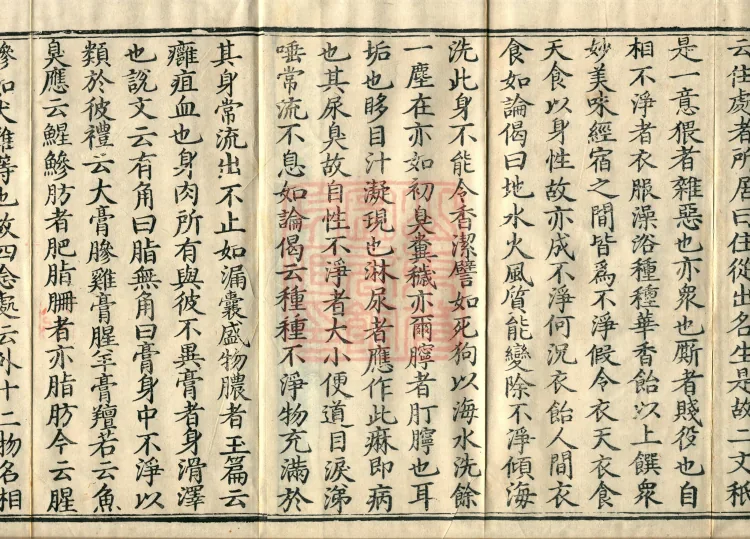 云住處者所居曰住從出名生是故二文秖
是一意猥者雜惡也亦衆也廝者賤役也自
相不淨者衣服澡浴種種華香飴以上饌衆
妙美味經宿之間皆爲不淨假令衣天衣食
天食以身性故亦成不淨何況衣飴人間衣
食如論偈曰地水火風質能變除不淨傾海
洗此身不能令香潔譬如死狗以海水洗餘
一塵在亦如初臭糞穢亦爾聹者耵聹也耳
垢也眵目汁凝現也淋尿者應作此痳即病
也其尿臭故自性不淨者大小便道目淚涕
唾常流不息如論偈云種種不淨物充滿於
其身常流出不止如漏囊盛物膿者玉篇云
癰疽血也身肉所有與彼不異膏者身滑澤
也說文云有角曰脂無角曰膏身中不淨以
類於彼禮云大膏臊雞膏腥羊膏羶若云魚
臭應云鯹鰺肪者肥脂𦙱者亦脂肪今云腥
臊如犬雞等也故四念處云外十二物名相